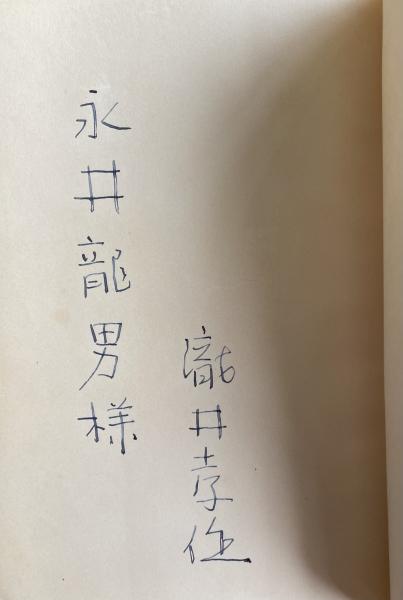 瀧井孝作
永井龍男様